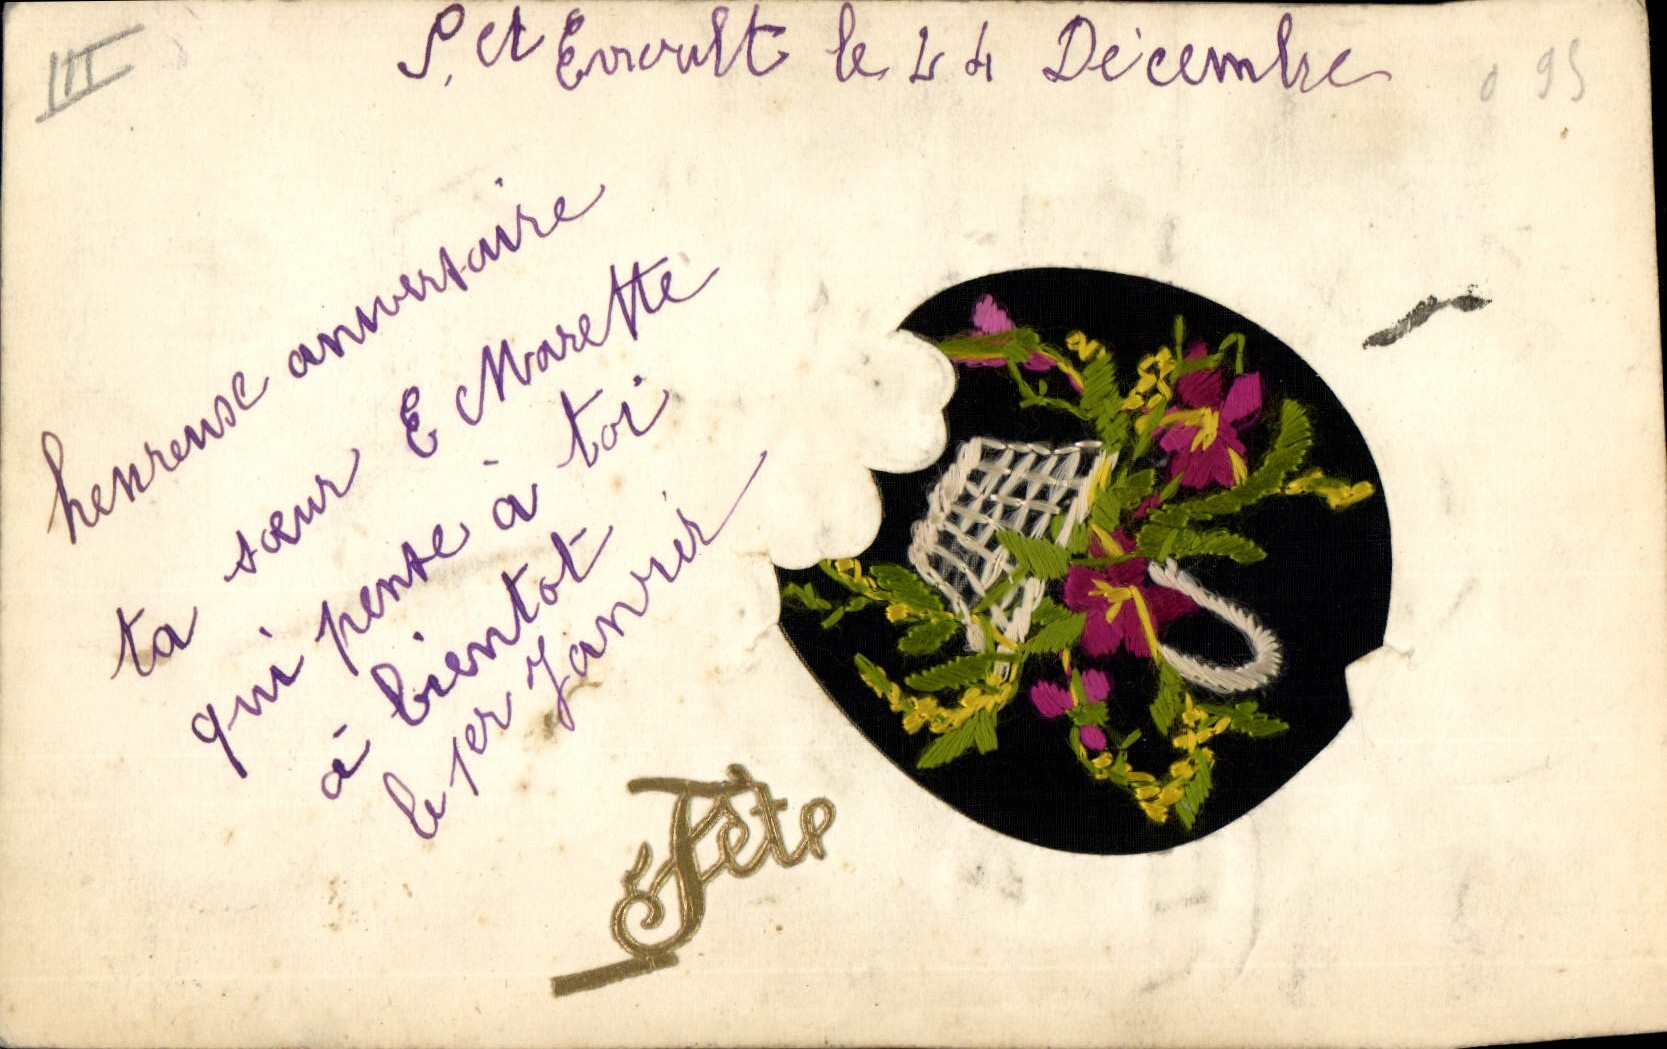 III
S. et Evroult le 24 Décembre
0 95
heureuse anniversaire
ta sœur E Marette
qui pense à toi
à bientot
le 1er Janvier
Fête